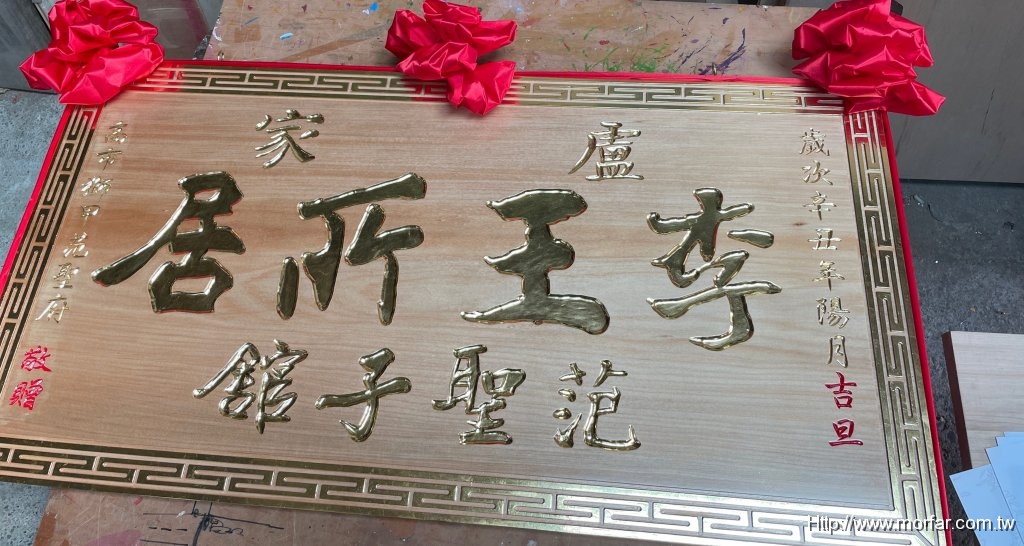 歲次辛丑年陽月吉旦
盧家
李王行居
范聖子館
高市樹甲范聖府
敬贈
Http://www.morfar.com.tw